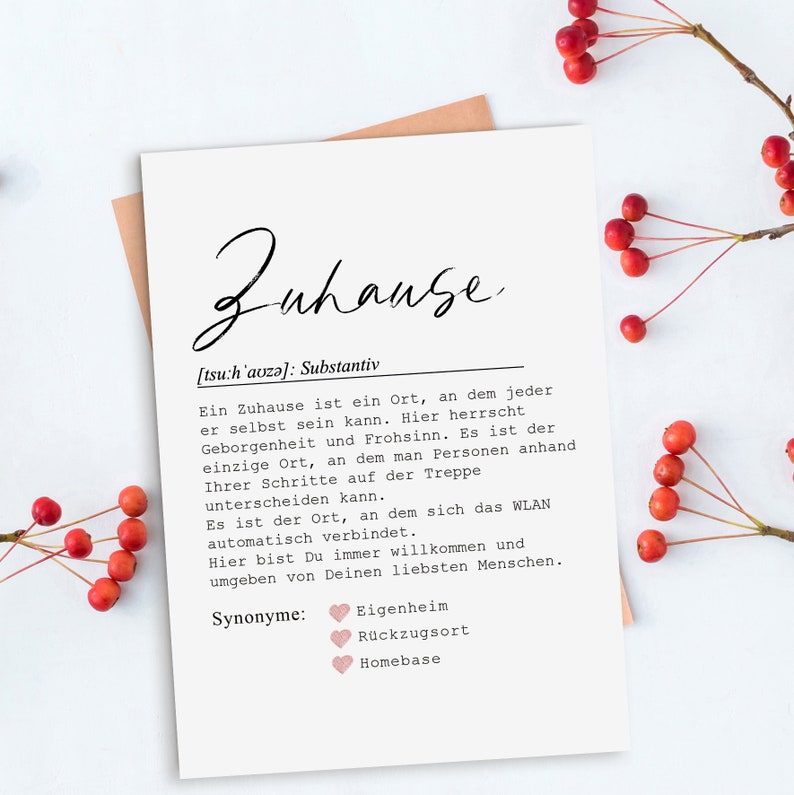 Zuhause
[tsuːhˈaʊzə]: Substantiv
Ein Zuhause ist ein Ort, an dem jeder
er selbst sein kann. Hier herrscht
Geborgenheit und Frohsinn. Es ist der
einzige Ort, an dem man Personen anhand
Ihrer Schritte auf der Treppe
unterscheiden kann.
Es ist der Ort, an dem sich das WLAN
automatisch verbindet.
Hier bist Du immer willkommen und
umgeben von Deinen liebsten Menschen.
Synonyme: Eigenheim
Rückzugsort
Homebase